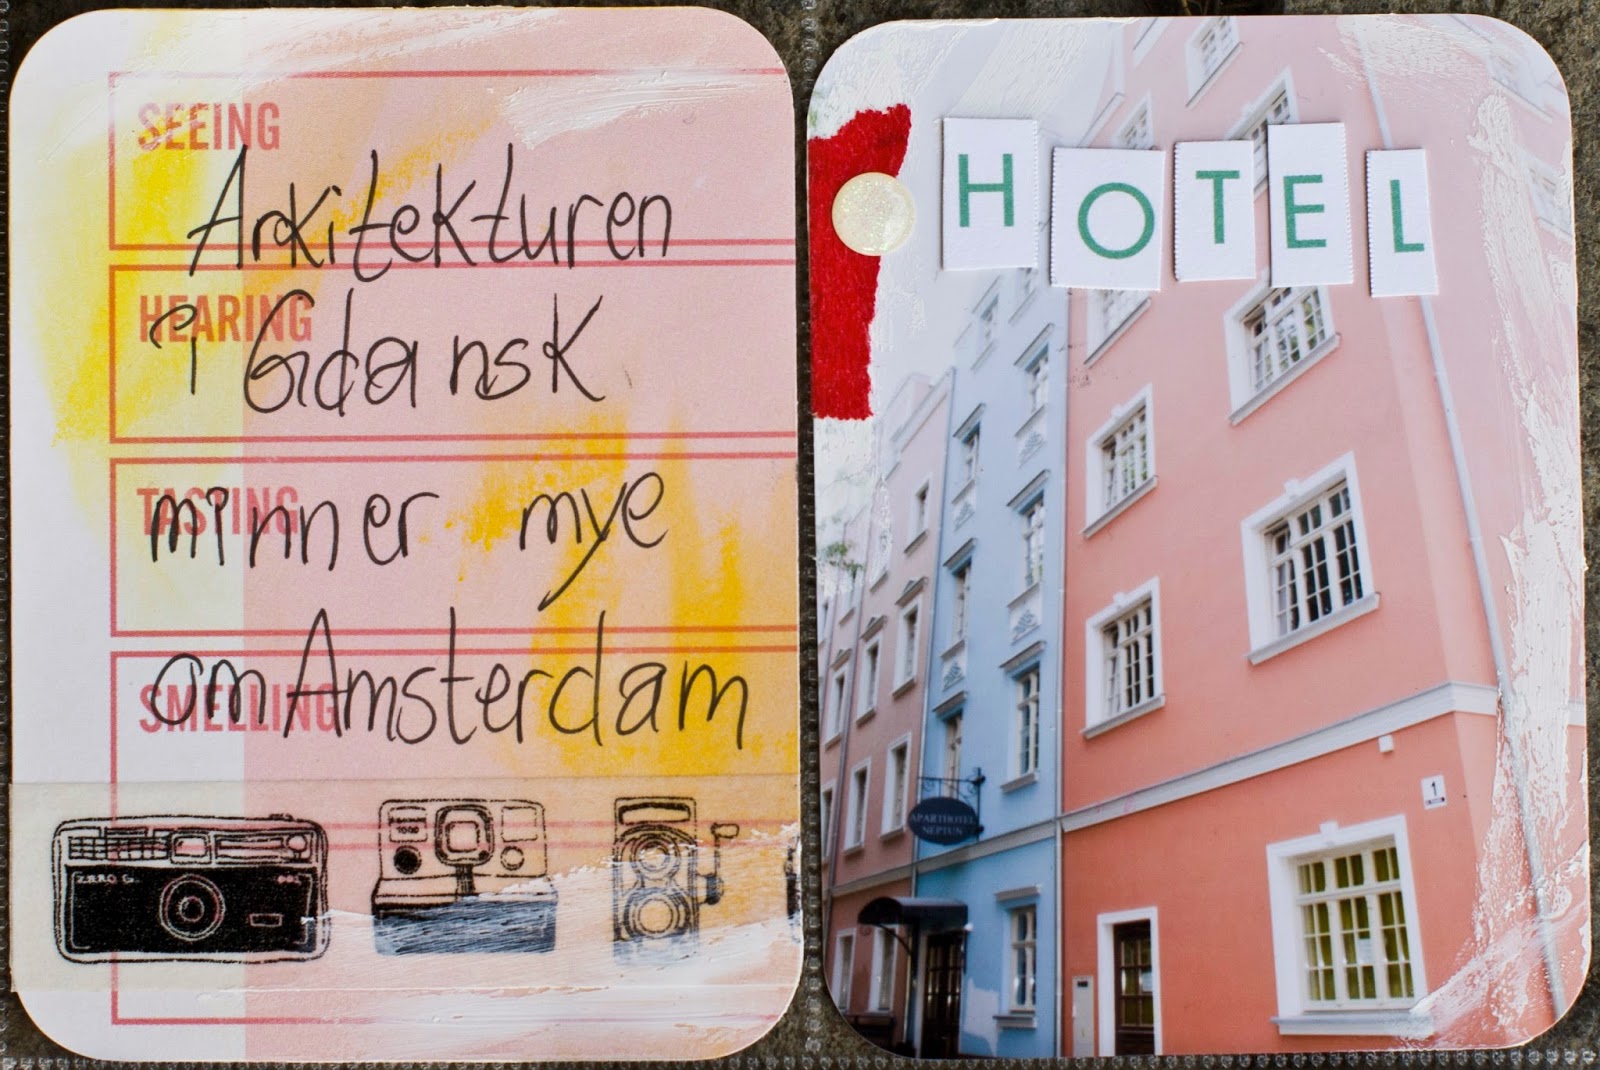 SEEING
Arkitekturen
HEARING
i Gdansk
TASTING
minner mye
SMELLING
om Amsterdam
ZERO G.
1000
HOTEL
APARTHOTEL
NEPTUN
1